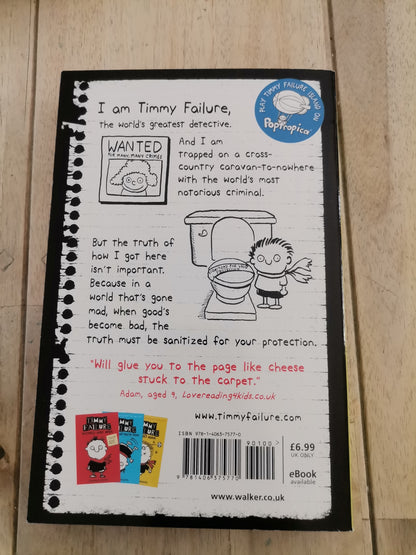 PLAY TIMMY FAILURE ISLAND ON
POPTROPICA
I am Timmy Failure,
the world's greatest detective.
WANTED
FOR MANY, MANY CRIMES
And I am
trapped on a cross-
country caravan-to-nowhere
with the world's most
notorious criminal.
But the truth of
how I got here
isn't important.
Because in a
world that's gone
mad, when good's
become bad, the
truth must be sanitized for your protection.
"Will glue you to the page like cheese
stuck to the carpet."
Adam, aged 9, Lovereading4kids.co.uk
www.timmyfailure.com
TIMMY
FAILURE
TIMMY
FAILURE
ISBN 978-1-4063-7577-0
90100
9 781406 375770
£6.99
UK ONLY
eBook
available
www.walker.co.uk